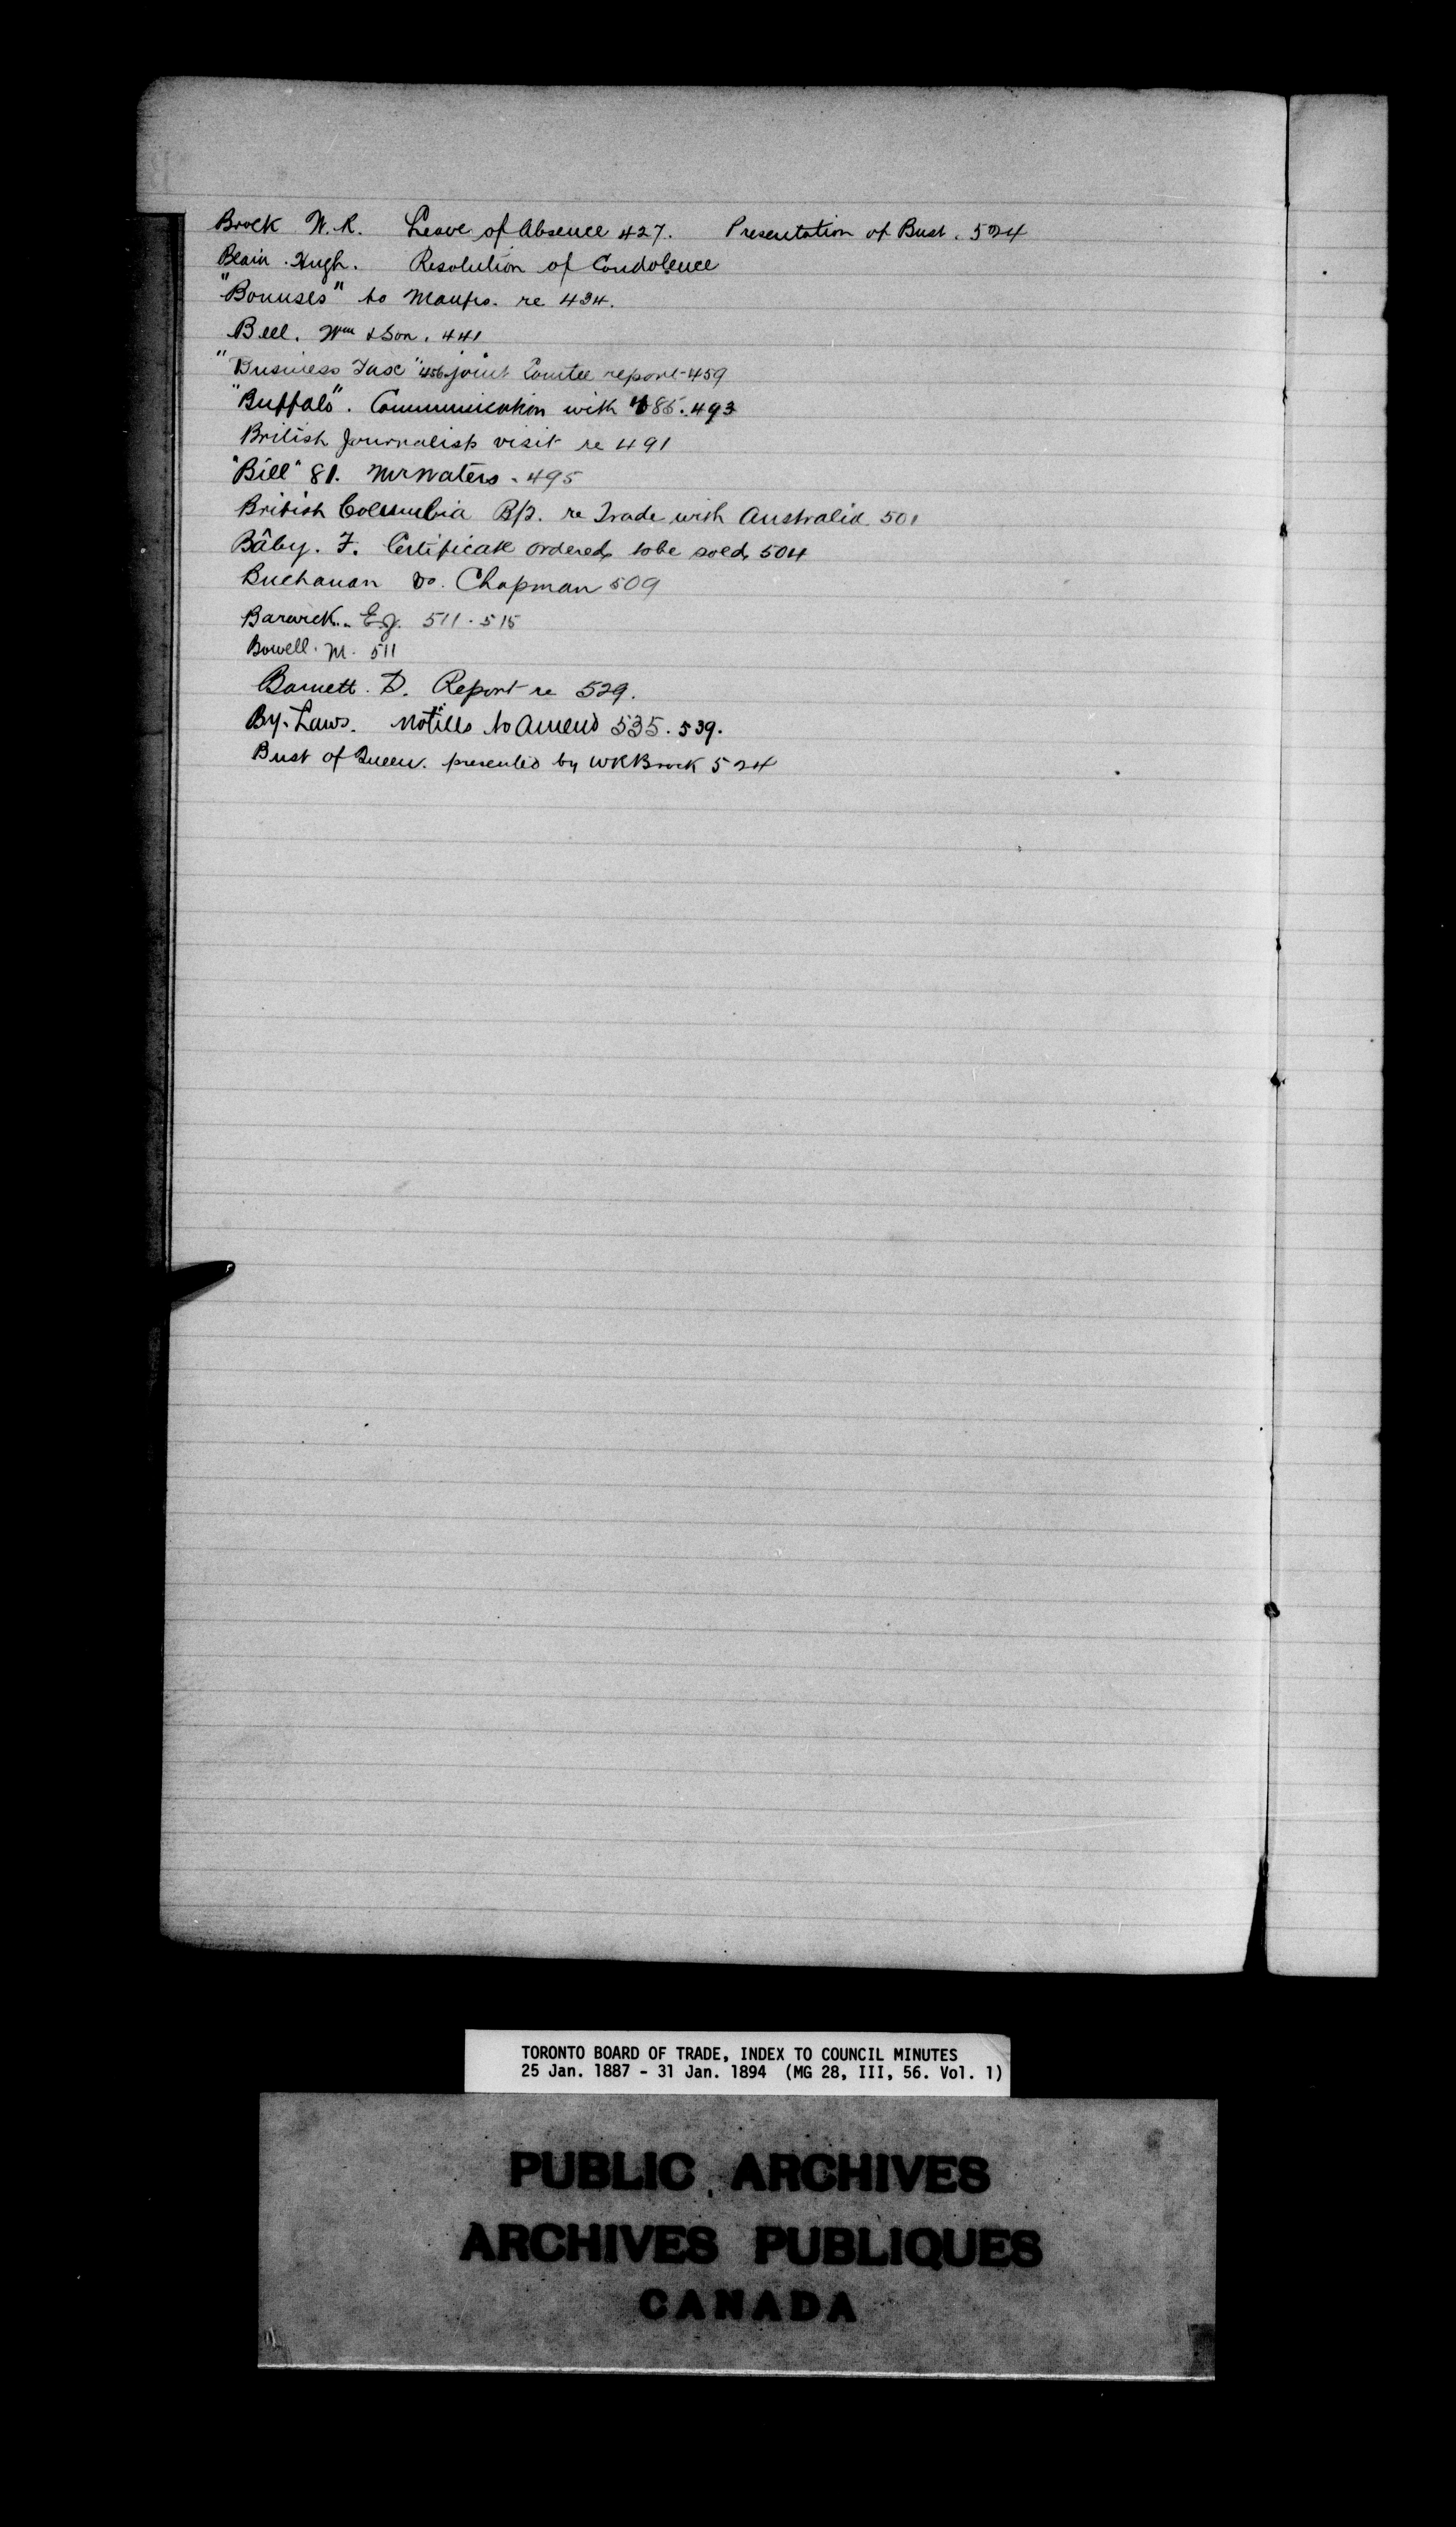 Brock W. R. Leave of Absence 427. Presentation of Bust. 524
Blain. Hugh. Resolution of Condolence
"Bonuses" to Manfrs. re 434.
Bell. Wm & Son. 441
"Business Tax" 456. joint Comtee report 459
"Buffalo". Communication with 485. 493
British Journalists visit re 491
"Bill" 81. Mr Waters. 495
British Columbia B/T. re Trade with Australia 501
Bâby. F. Certificate ordered to be sold 504
Buchanan vs. Chapman 509
Barwick. 511. 515
Bowell. M. 511
Barnett. D. Report re 529.
By-Laws. Notices to Amend 535. 539.
Bust of Queen. presented by WR Brock 524
TORONTO BOARD OF TRADE, INDEX TO COUNCIL MINUTES
25 Jan. 1887 - 31 Jan. 1894 (MG 28, III, 56. Vol. 1)
PUBLIC ARCHIVES
ARCHIVES PUBLIQUES
CANADA